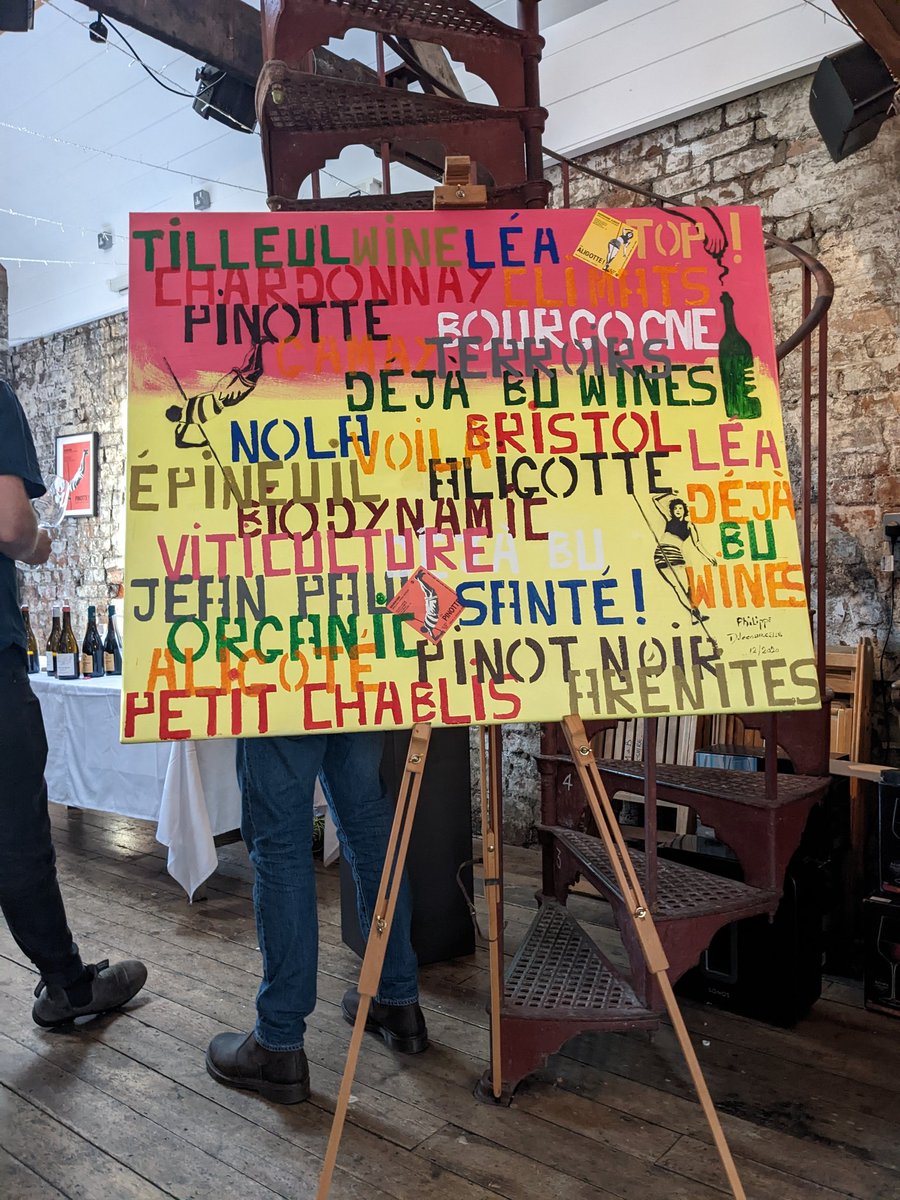 TILLEUL WINE LÉA TOP !
ALIGOTTE!
CHARDONNAY CLIMATS
PINOTTE BOURGOGNE
GAMAY TERROIRS
DÉJÀ BU WINES
NOLA VOILÀ BRISTOL LÉA
ÉPINEUIL ALIGOTTE DÉJÀ
BIODYNAMIC BU
VITICULTURE À BU WINES
JEAN PAUL PINOTTE SANTÉ!
ORGANIC Philippe
12/2020
ALIGOTÉ PINOT NOIR
PETIT CHABLIS ARÉNITES
PINOTTE
4
3
SONOS